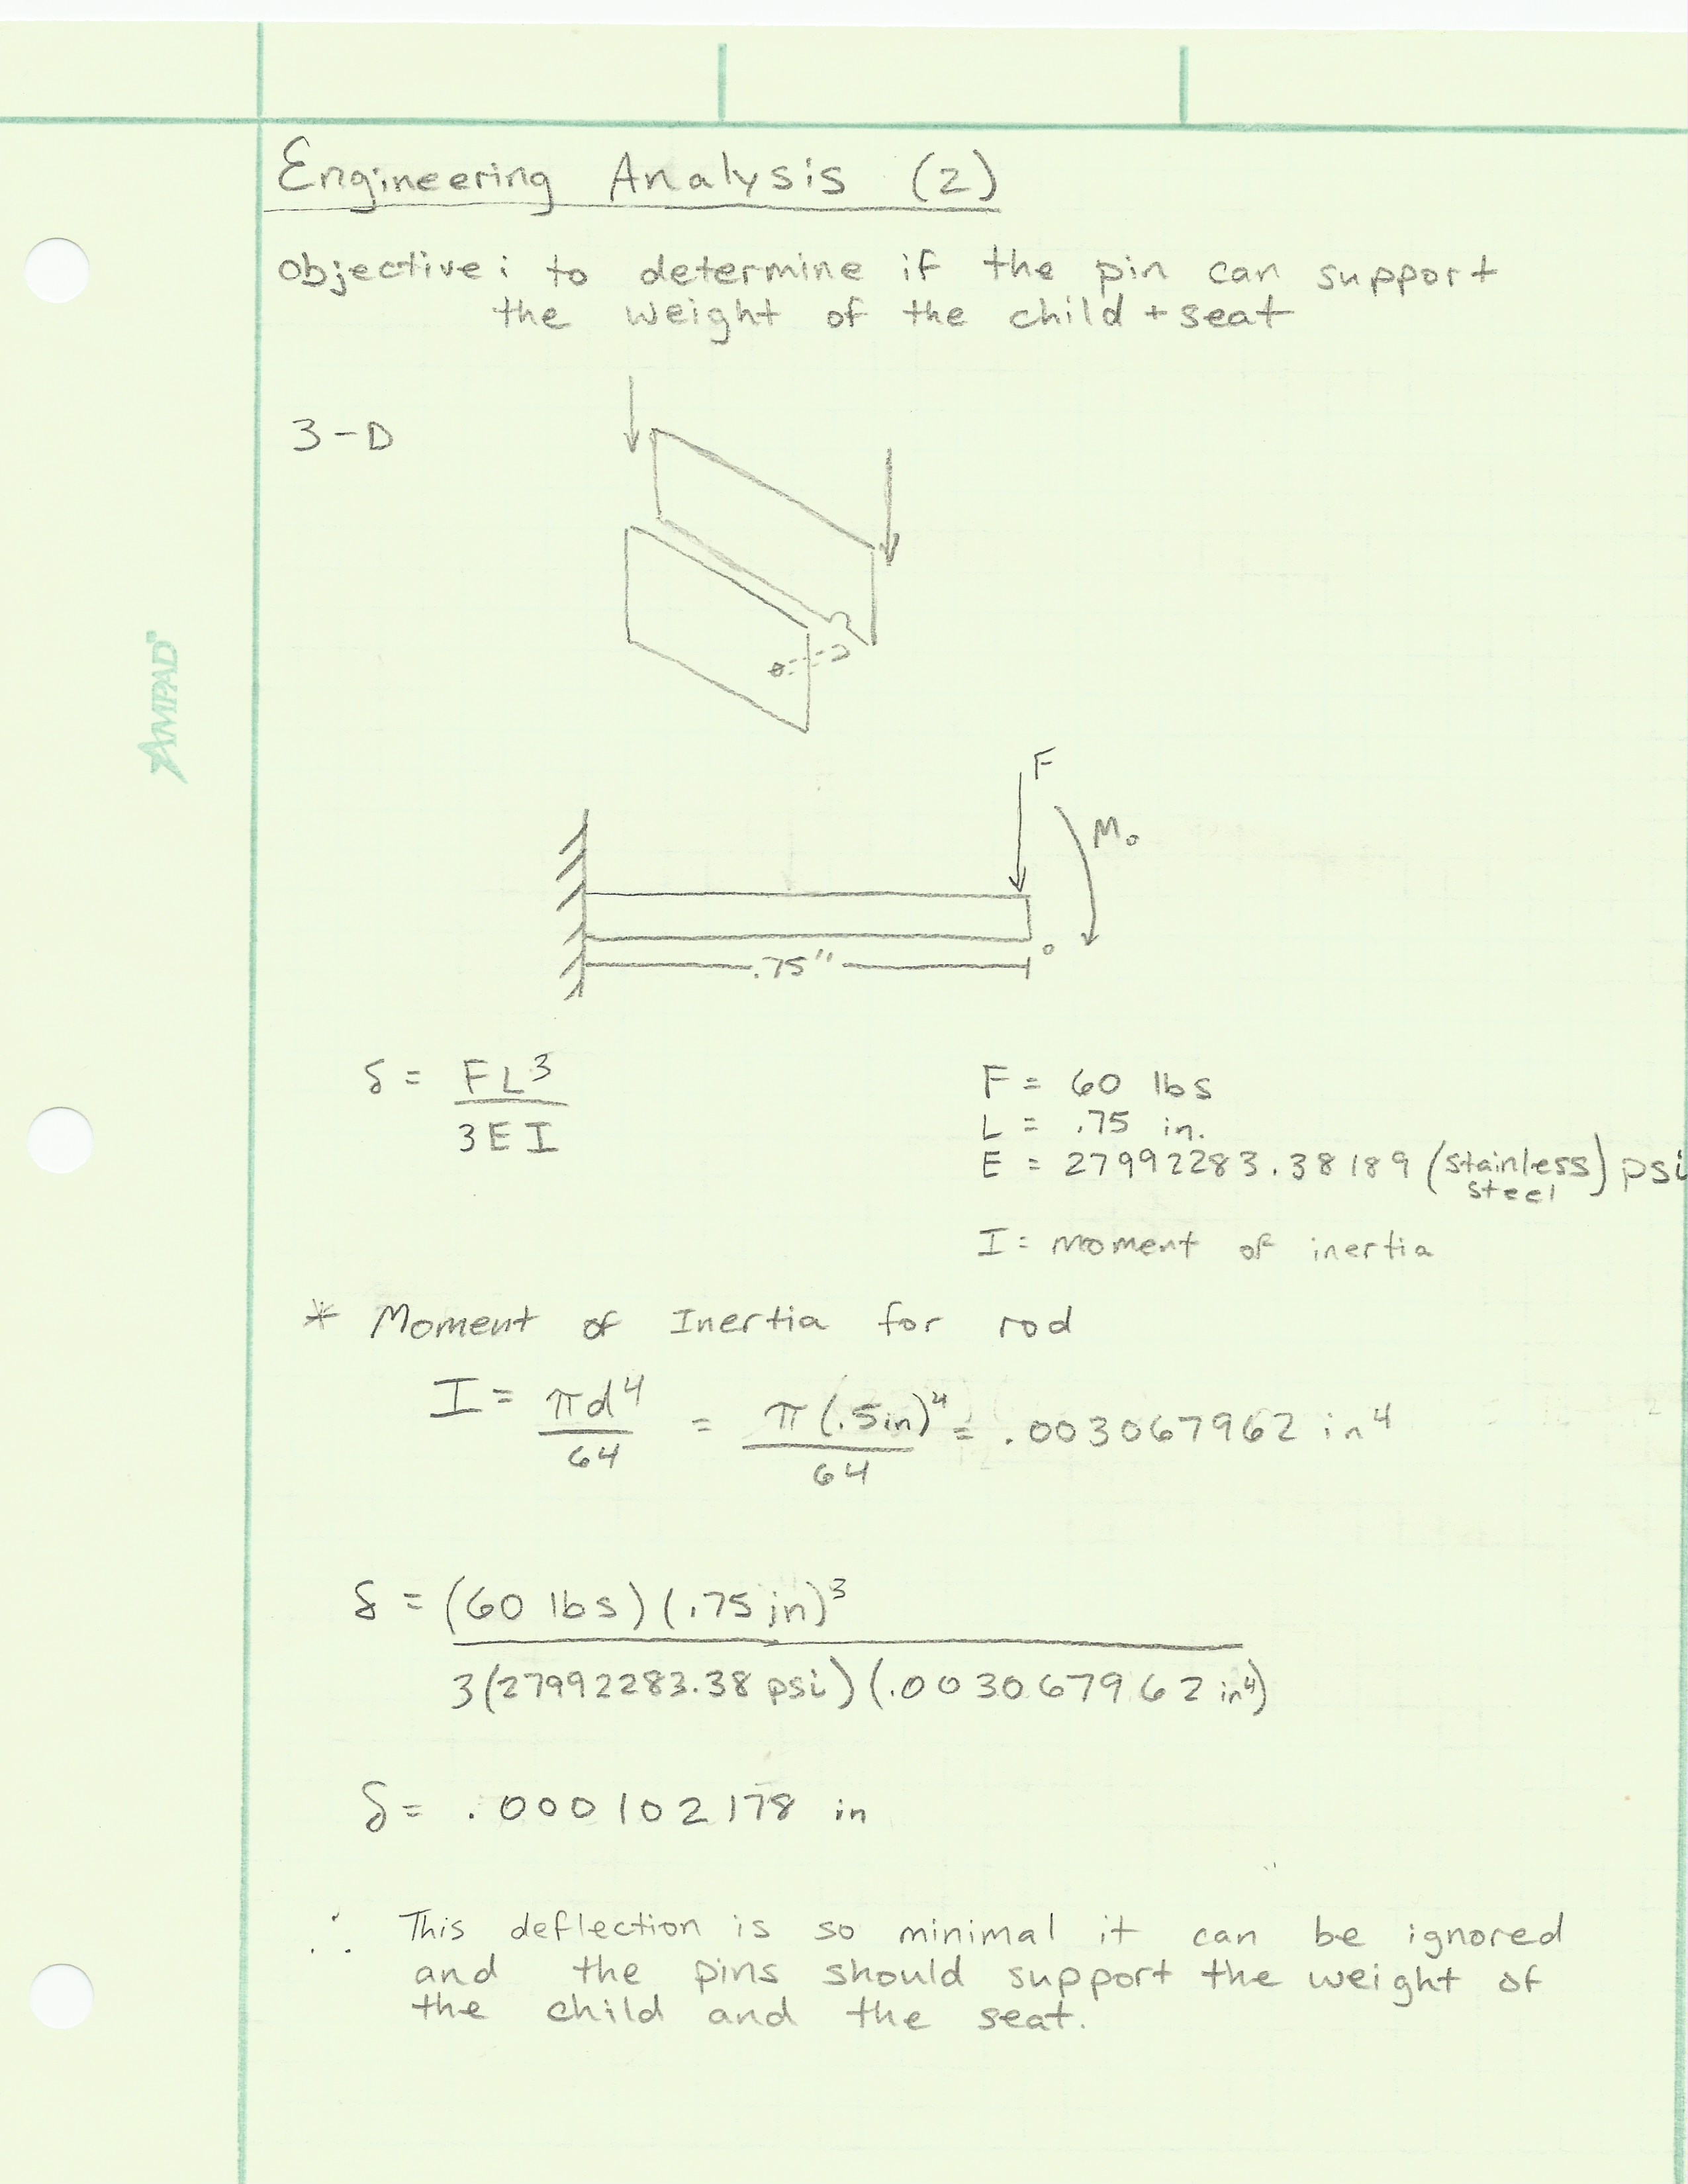 Engineering Analysis (2)
Objective: to determine if the pin can support
the weight of the child + seat
3-D
AMPAD
F
M₀
0
.75"
δ = FL³
3EI
F = 60 lbs
L = .75 in.
E = 27992283.38189 (stainless steel) psi
I = moment of inertia
* Moment of Inertia for rod
I = πd⁴/64 = π(.5in)⁴/64 = .003067962 in⁴
δ = (60 lbs)(.75 in)³
3(27992283.38 psi)(.003067962 in⁴)
δ = .000102178 in
∴ This deflection is so minimal it can be ignored
and the pins should support the weight of
the child and the seat.